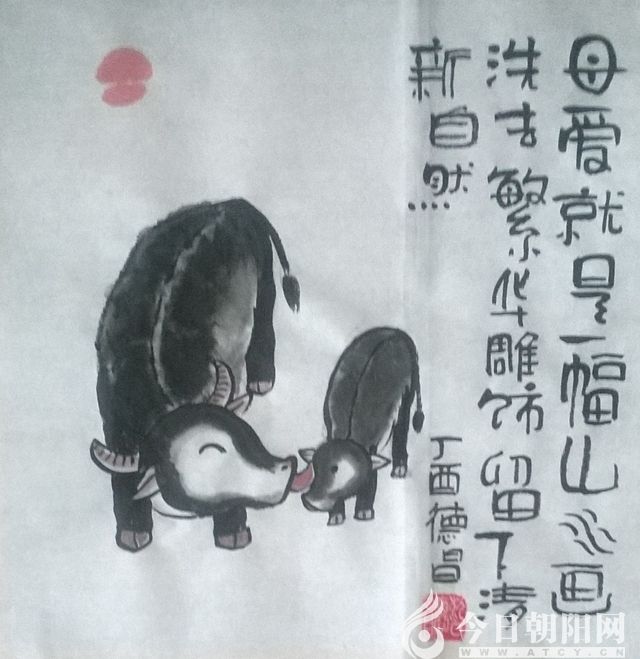 母爱就是一幅山水画
洗去繁华雕饰留下清
新自然
丁酉德昌
今日朝阳网
WWW.ATCY.CN